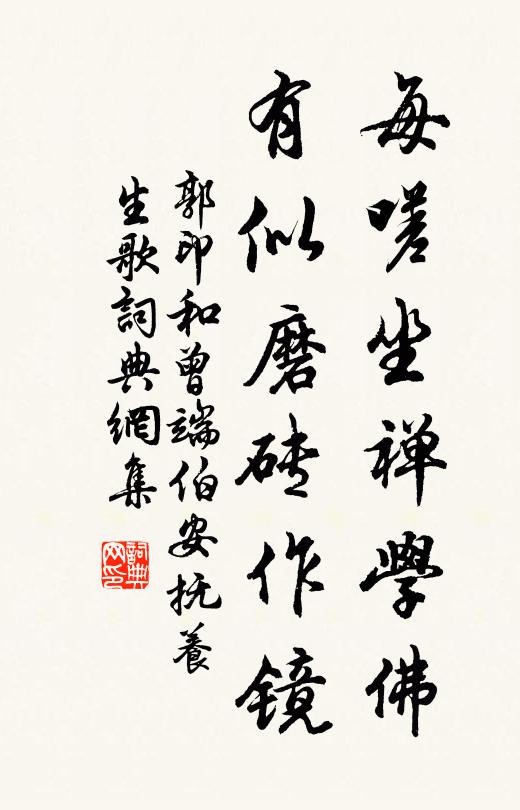 每嗟坐禅學佛
有似磨砖作镜
郭印和曾端伯安抚養
生歌詞典網集
詞典网印